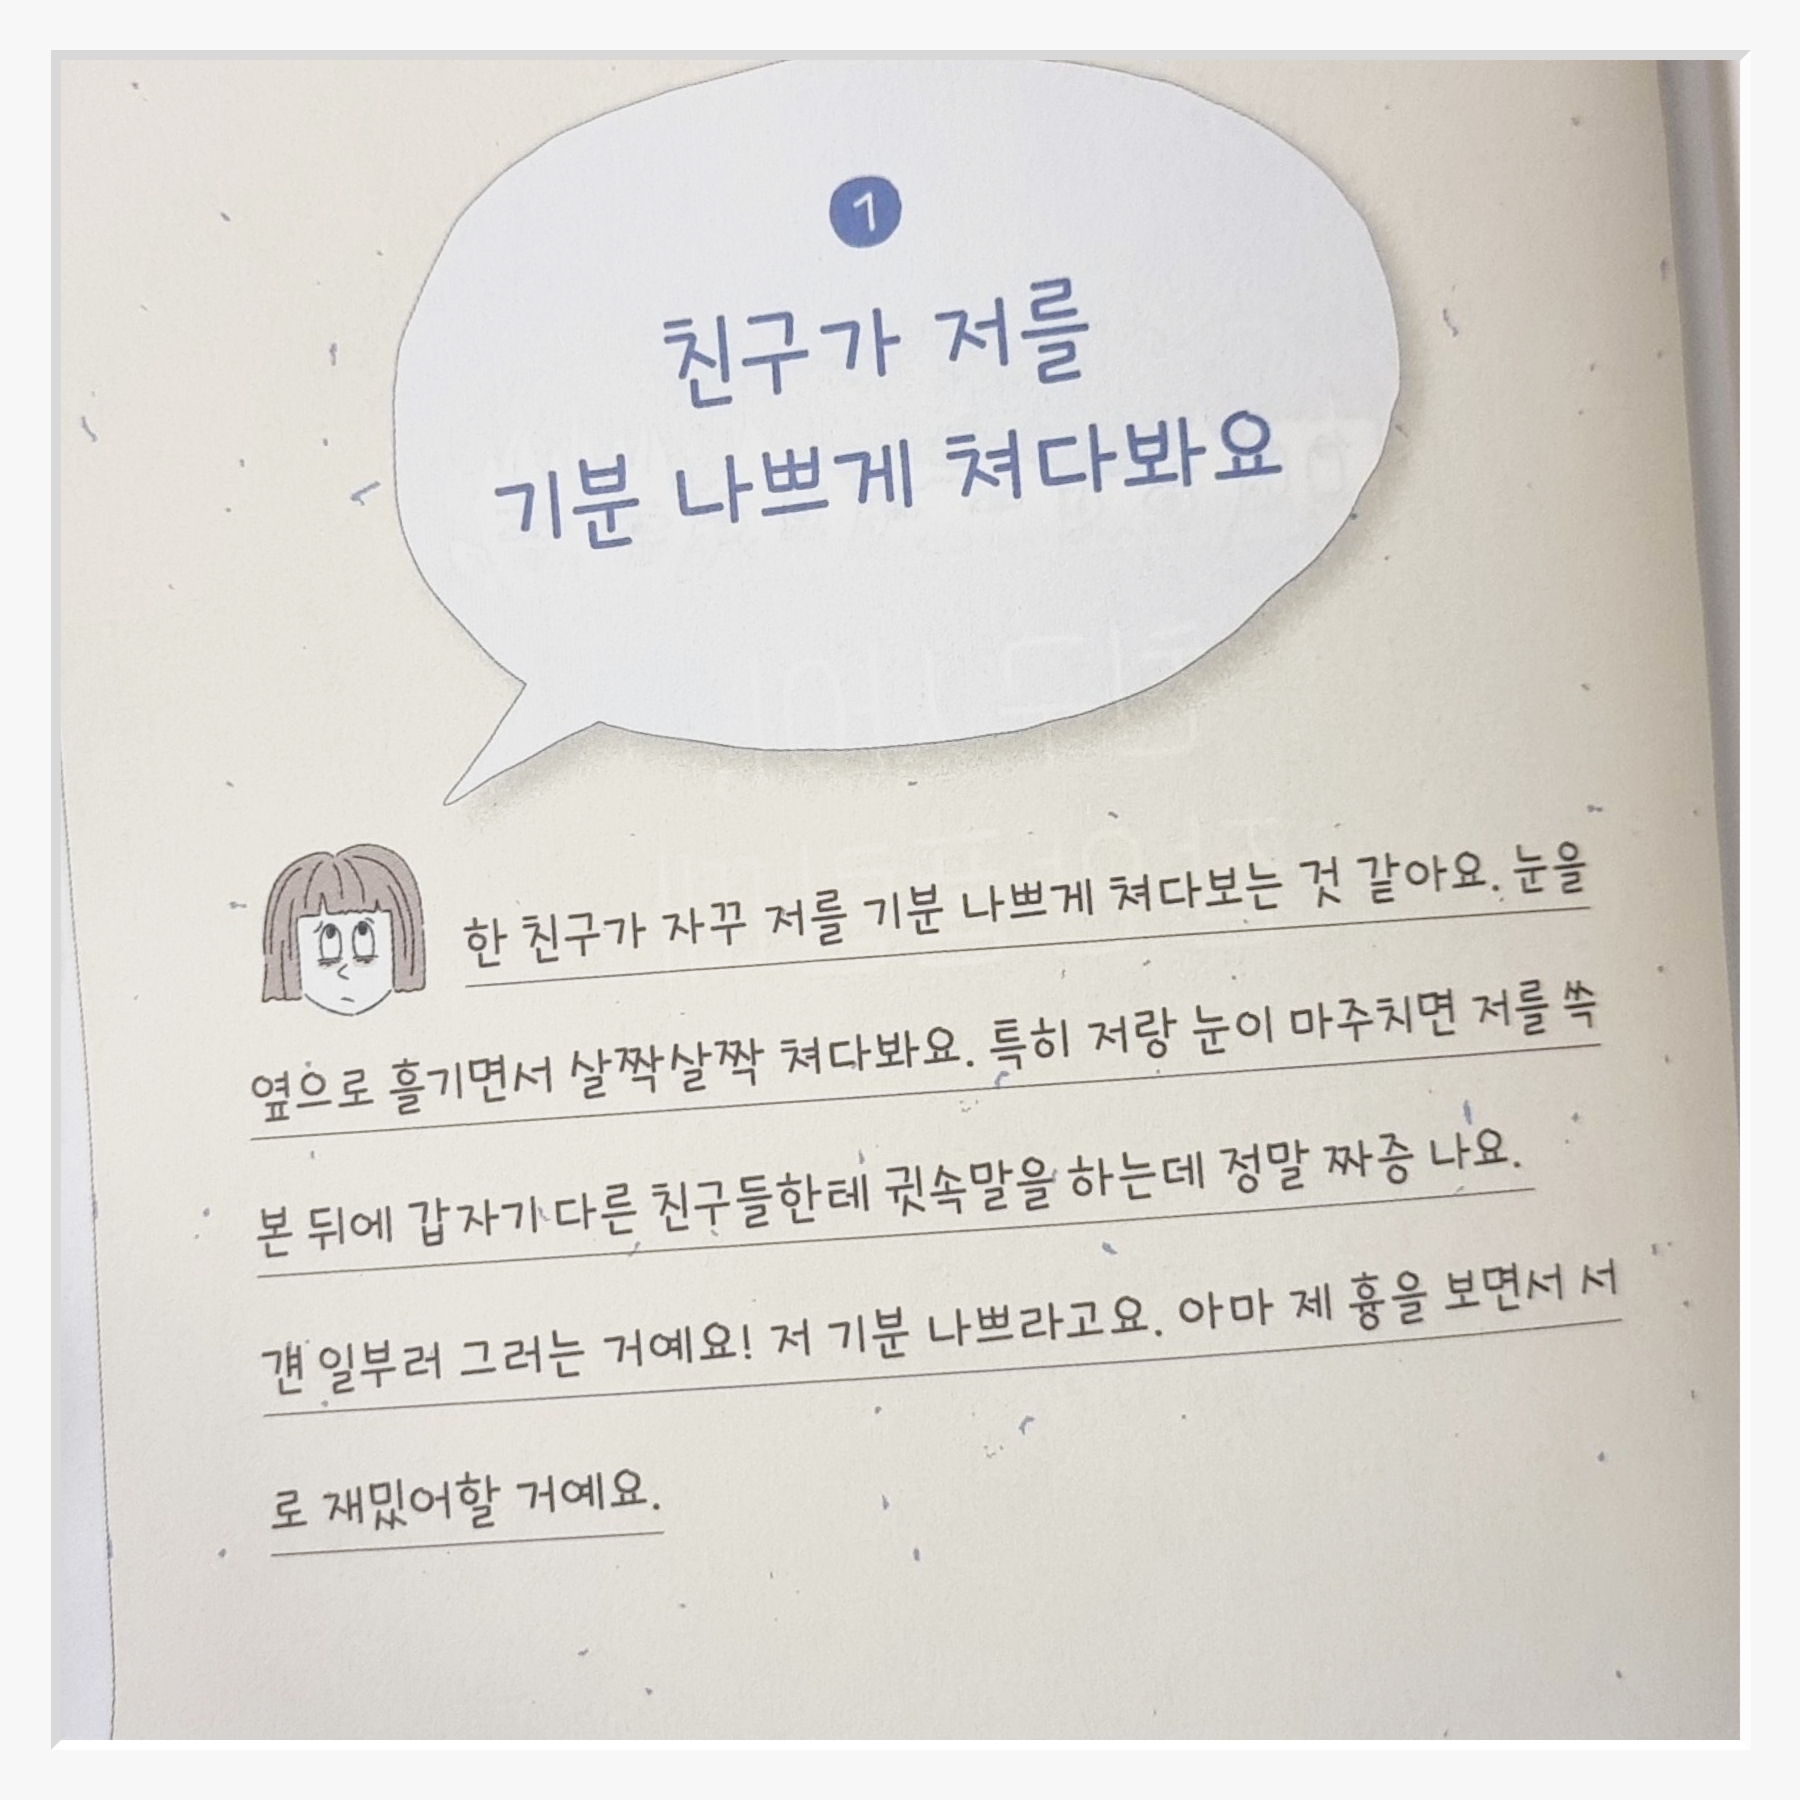 1
친구가 저를
기분 나쁘게 쳐다봐요
한 친구가 자꾸 저를 기분 나쁘게 쳐다보는 것 같아요. 눈을
옆으로 흘기면서 살짝살짝 쳐다봐요. 특히 저랑 눈이 마주치면 저를 쓱
본 뒤에 갑자기 다른 친구들한테 귓속말을 하는데 정말 짜증 나요.
걘 일부러 그러는 거예요! 저 기분 나쁘라고요. 아마 제 흉을 보면서 서
로 재밌어할 거예요.